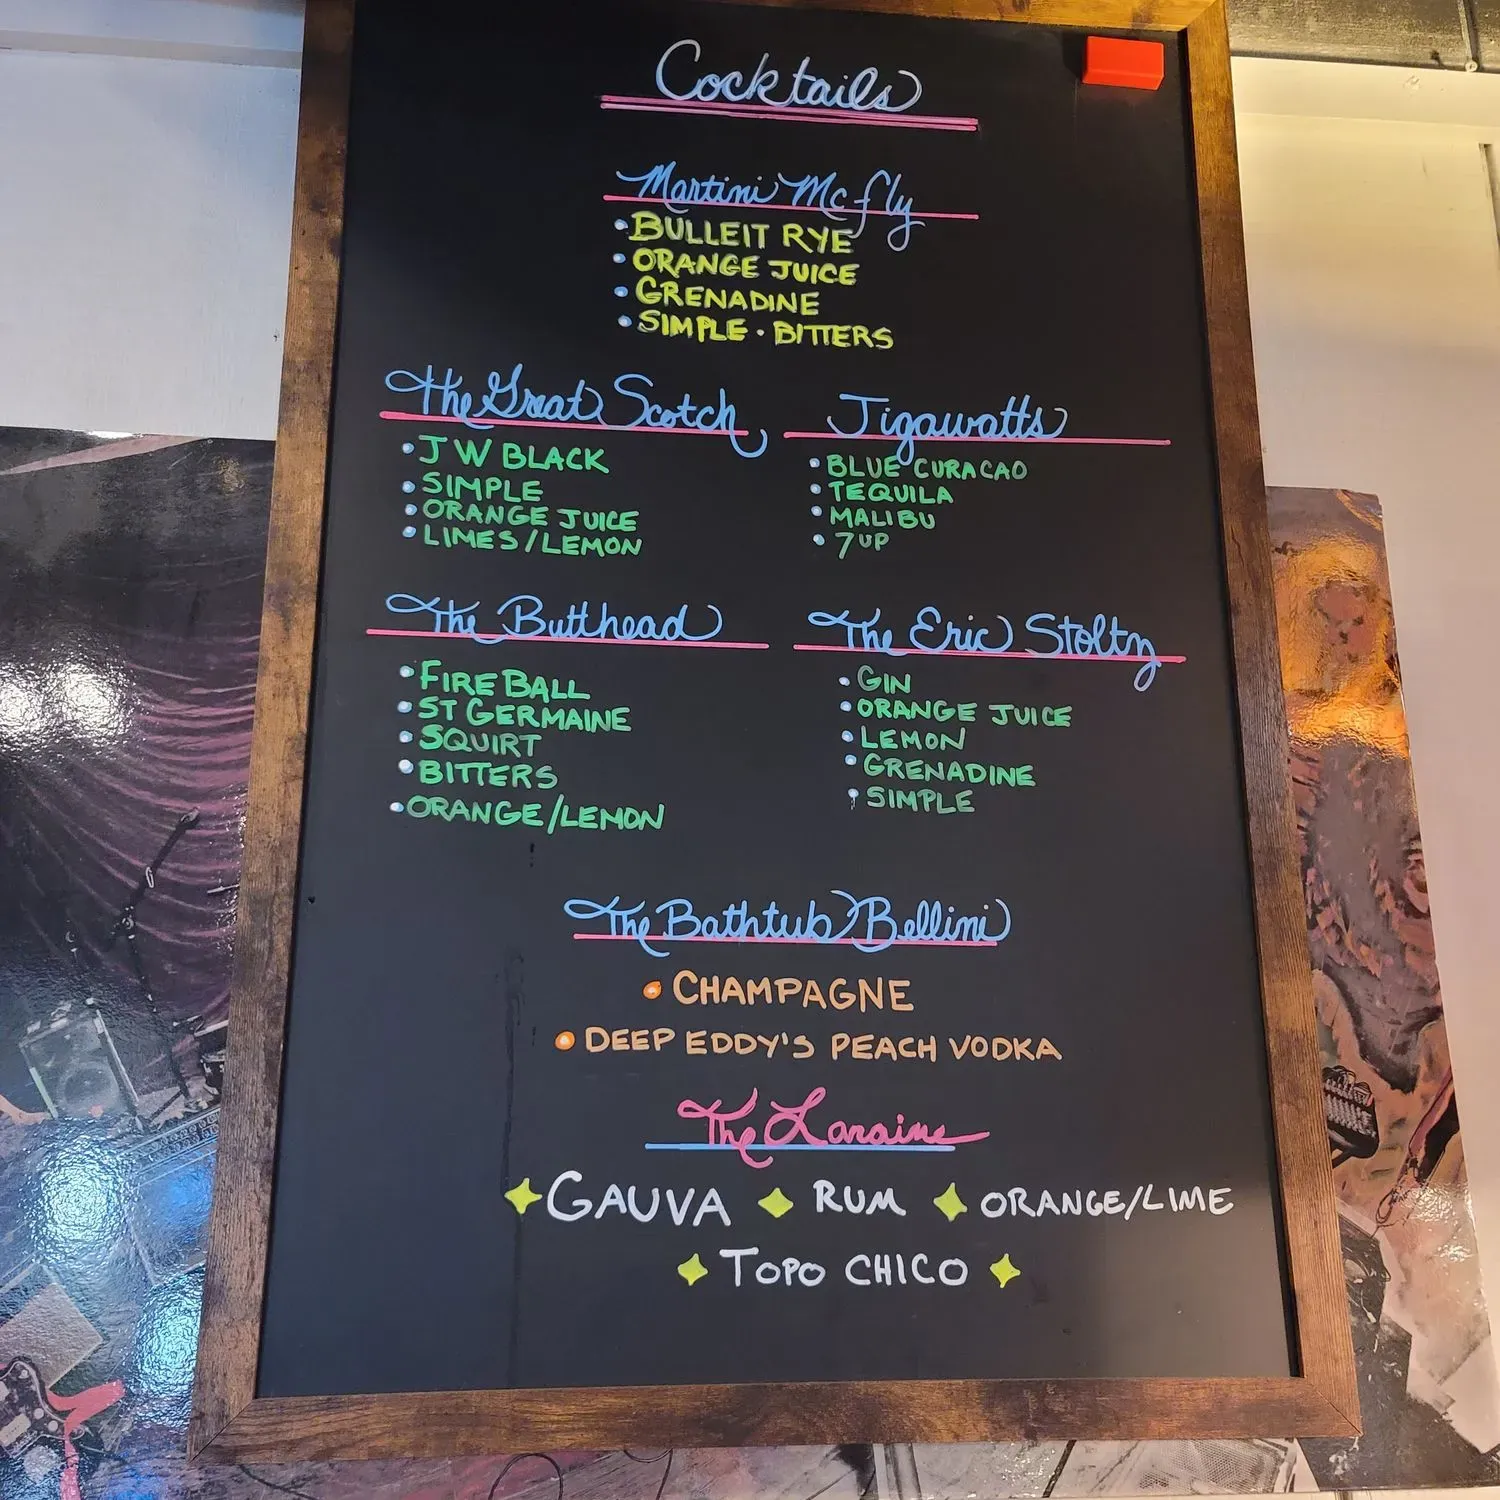 Cocktails
Martini McFly
• BULLEIT RYE
• ORANGE JUICE
• GRENADINE
• SIMPLE · BITTERS
The Great Scotch
• JW BLACK
• SIMPLE
• ORANGE JUICE
• LIMES/LEMON
Jigawatts
• BLUE CURACAO
• TEQUILA
• MALIBU
• 7UP
The Butthead
• FIREBALL
• ST GERMAINE
• SQUIRT
• BITTERS
• ORANGE/LEMON
The Eric Stoltz
• GIN
• ORANGE JUICE
• LEMON
• GRENADINE
• SIMPLE
The Bathtub Bellini
• CHAMPAGNE
• DEEP EDDY'S PEACH VODKA
The Loraine
✦ GAUVA ✦ RUM ✦ ORANGE/LIME
✦ TOPO CHICO ✦